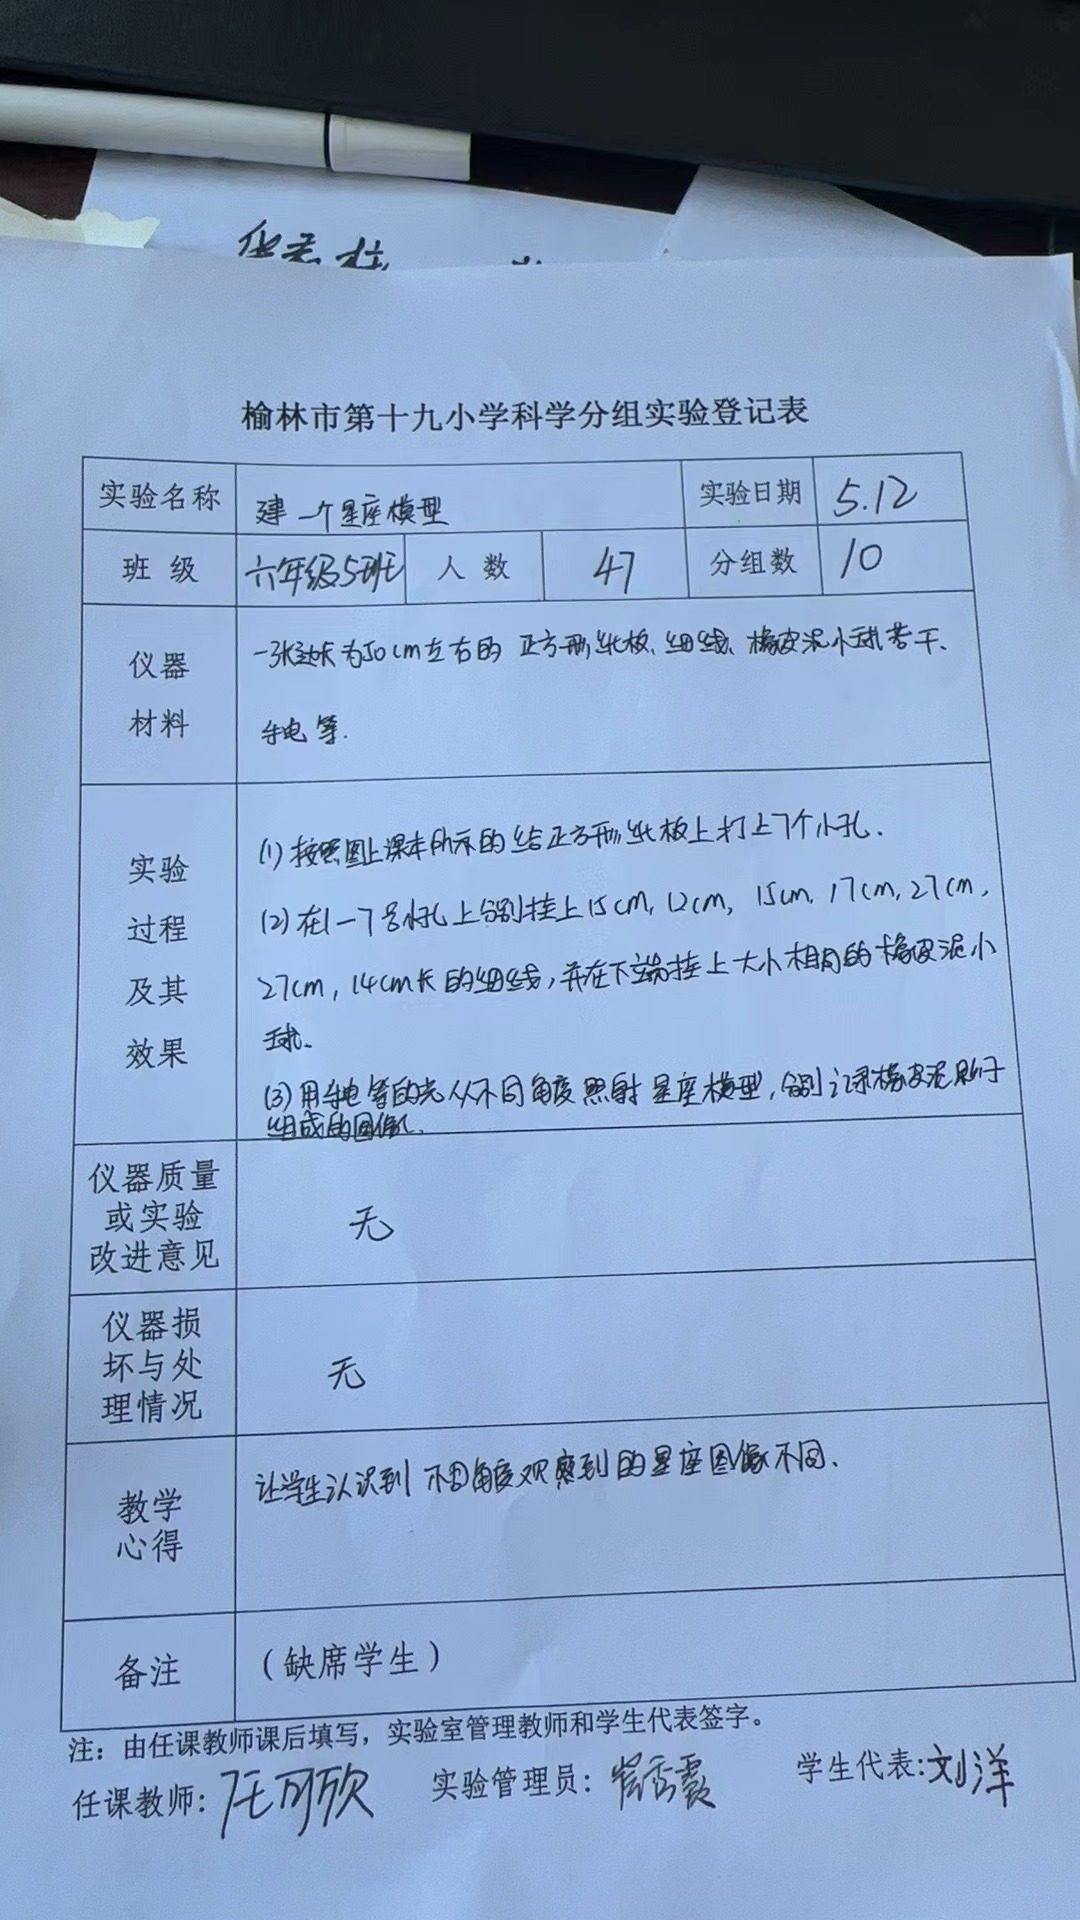 榆林市第十九小学科学分组实验登记表
实验名称 建一个星座模型 实验日期 5.12
班级 六年级5班 人数 47 分组数 10
仪器 一张边长为50cm左右的正方形纸板、细线、橡皮泥小球若干、
材料 手电等.
(1)按照图上课本所示的给正方形纸板上打上7个小孔.
实验
(2)在1-7号小孔上分别挂上15cm, 12cm, 15cm, 17cm, 27cm,
过程
及其 27cm, 14cm长的细线,并在下端挂上大小相同的橡皮泥小
效果 球.
(3)用手电等的光从不同角度照射星座模型,分别记录橡皮泥影子
组成的图像.
仪器质量
或实验 无
改进意见
仪器损
坏与处 无
理情况
教学 让学生认识到不同角度观察到的星座图像不同.
心得
备注 (缺席学生)
注：由任课教师课后填写，实验室管理教师和学生代表签字。
任课教师: 任可欣 实验管理员: 秀霞 学生代表:刘洋